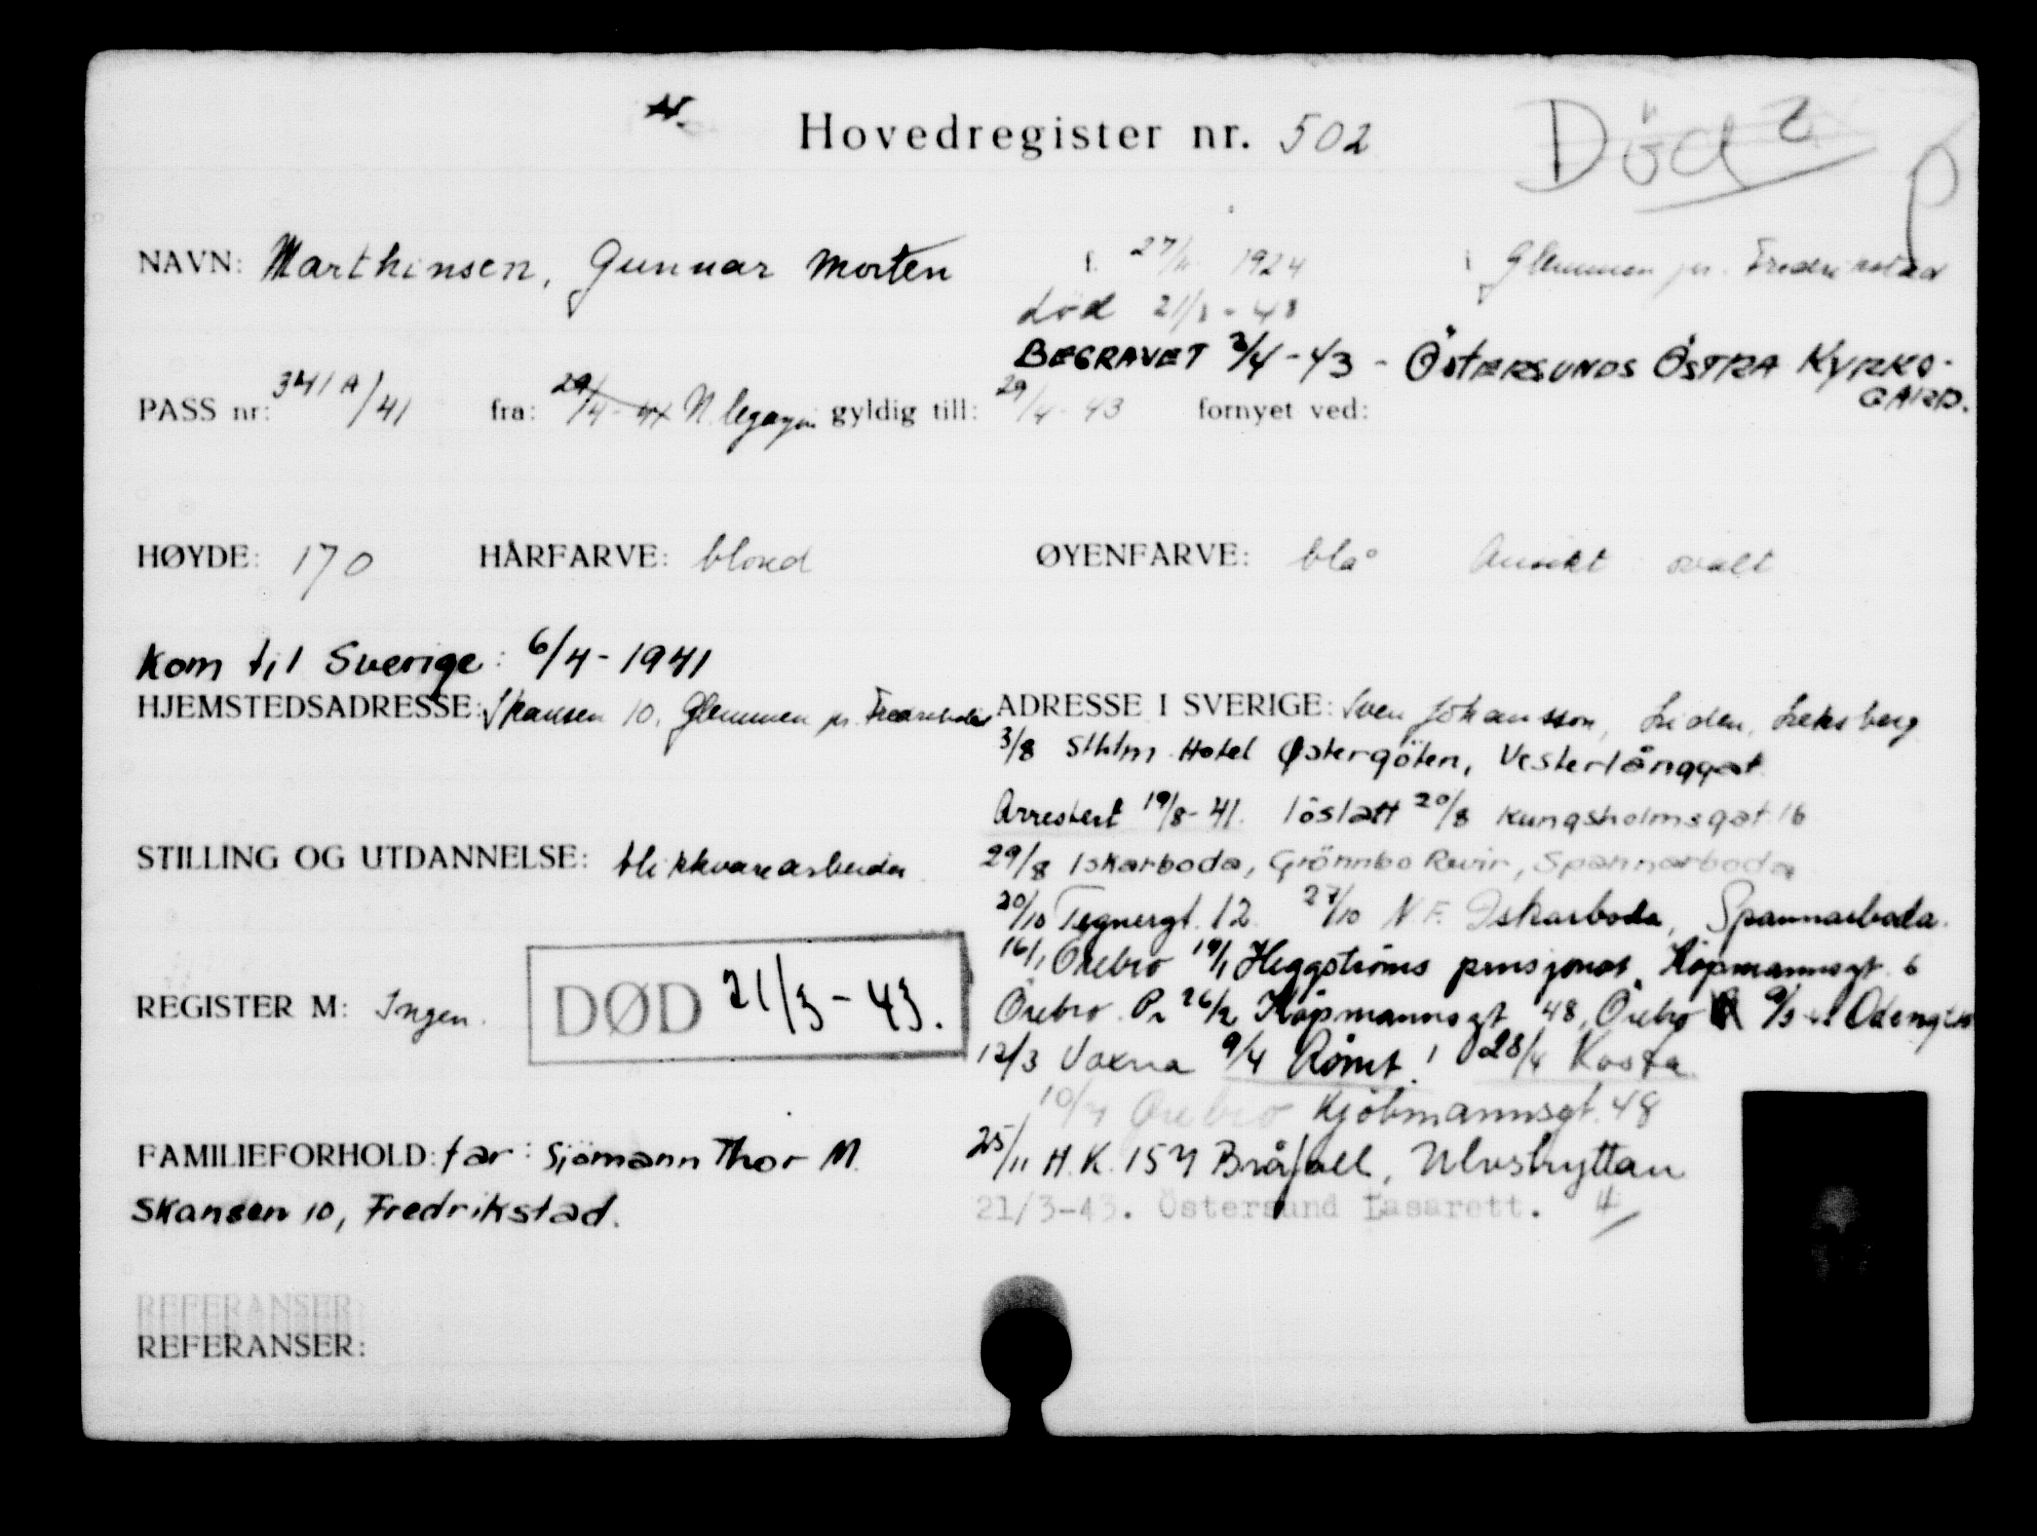 Hovedregister nr. 502
Död
NAVN: Marthinsen, Gunnar Morten 27/ 1924 i Glemmen pr. Fredrikstad
död 21/3 - 43
BEGRAVET 3/4 - 43 - ÖSTERSUNDS ÖSTRA KYRKO-
GARD.
PASS nr: 341 A/41 fra: 29/4 - 41 N legasjon gyldig till: 29/4 - 43 fornyet ved:
HØYDE: 170 HÅRFARVE: blond ØYENFARVE: blå Ansikt ovalt
Kom til Sverige: 6/4 - 1941
HJEMSTEDSADRESSE: Skansen 10, Glemmen pr. Fredrikstad
ADRESSE I SVERIGE: Sven Johansson, Liden, Leksberg
3/8 Sthlm Hotel Östergöten, Vesterlånggat.
Arrestert 19/8 - 41. löslatt 20/8 Kungsholmsgat. 16
STILLING OG UTDANNELSE: blikkvarearbeider
29/8 Iskarboda, Grönnbo Revir, Spannarboda
20/10 Tegnergt. 12. 27/10 N F. Iskarboda, Spannarboda.
16/1 Örebro 19/1 Heggströms pensjonat, Köpmannsgt. 6
REGISTER M: Ingen.
DØD 21/3 - 43.
Örebro. 26/2 Köpmannsgt 48, Örebro 9/3 Odengt
12/3 Voxna 9/4 Römt! 28/4 Kosta
10/7 Örebro Kjöbmannsgt. 48
FAMILIEFORHOLD: far: Sjömann Thor M.
Skansen 10, Fredrikstad.
25/11 H.K. 154 Bråfall, Ulvshyttan
21/3-43. Östersund Lasarett. 4
REFERANSER
REFERANSER: